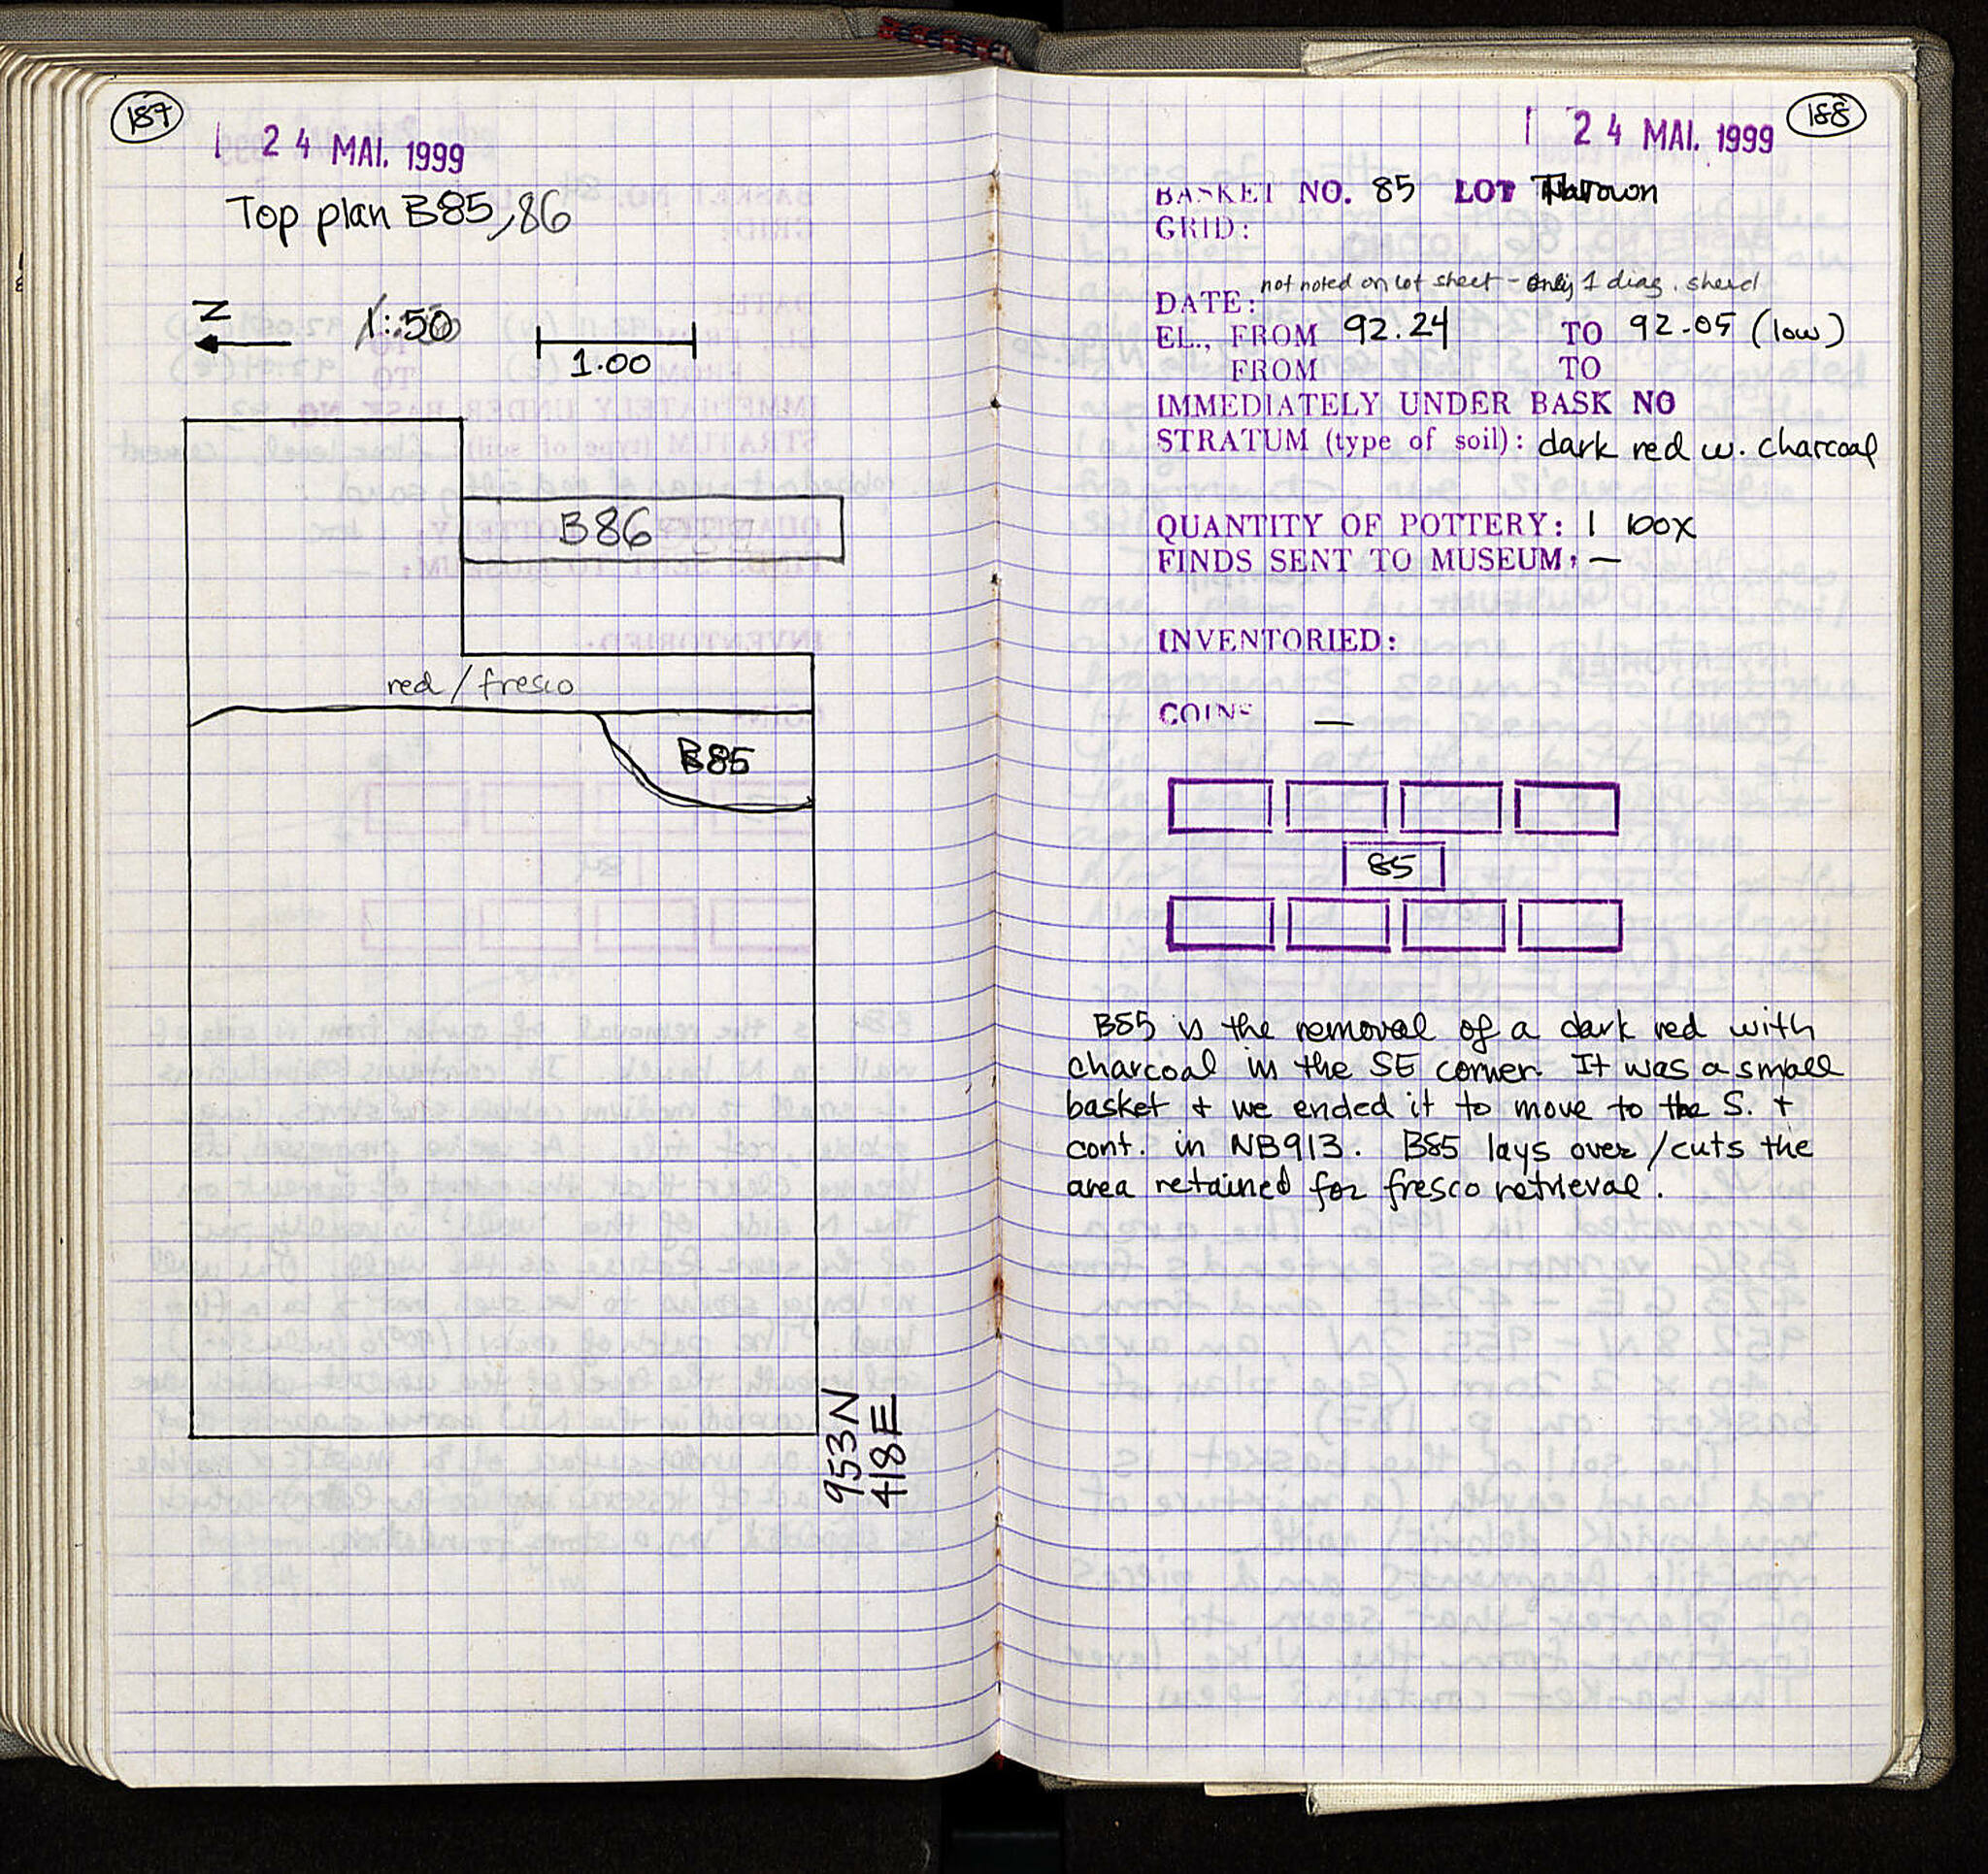 187
24 MAI. 1999
Top plan B85, 86
N
1:50
1.00
B86
red / fresco
B85
953N
418E
188
24 MAI. 1999
BASKET NO. 85 LOT Thrown
GRID:
not noted on lot sheet - only 1 diag. sherd
DATE:
EL., FROM 92.24 TO 92.05 (low)
FROM TO
IMMEDIATELY UNDER BASK NO
STRATUM (type of soil): dark red w. charcoal
QUANTITY OF POTTERY: 1 box
FINDS SENT TO MUSEUM: —
INVENTORIED:
COINS —
85
B85 is the removal of a dark red with
charcoal in the SE corner. It was a small
basket + we ended it to move to the S. +
cont. in NB913. B85 lays over/cuts the
area retained for fresco retrieval.